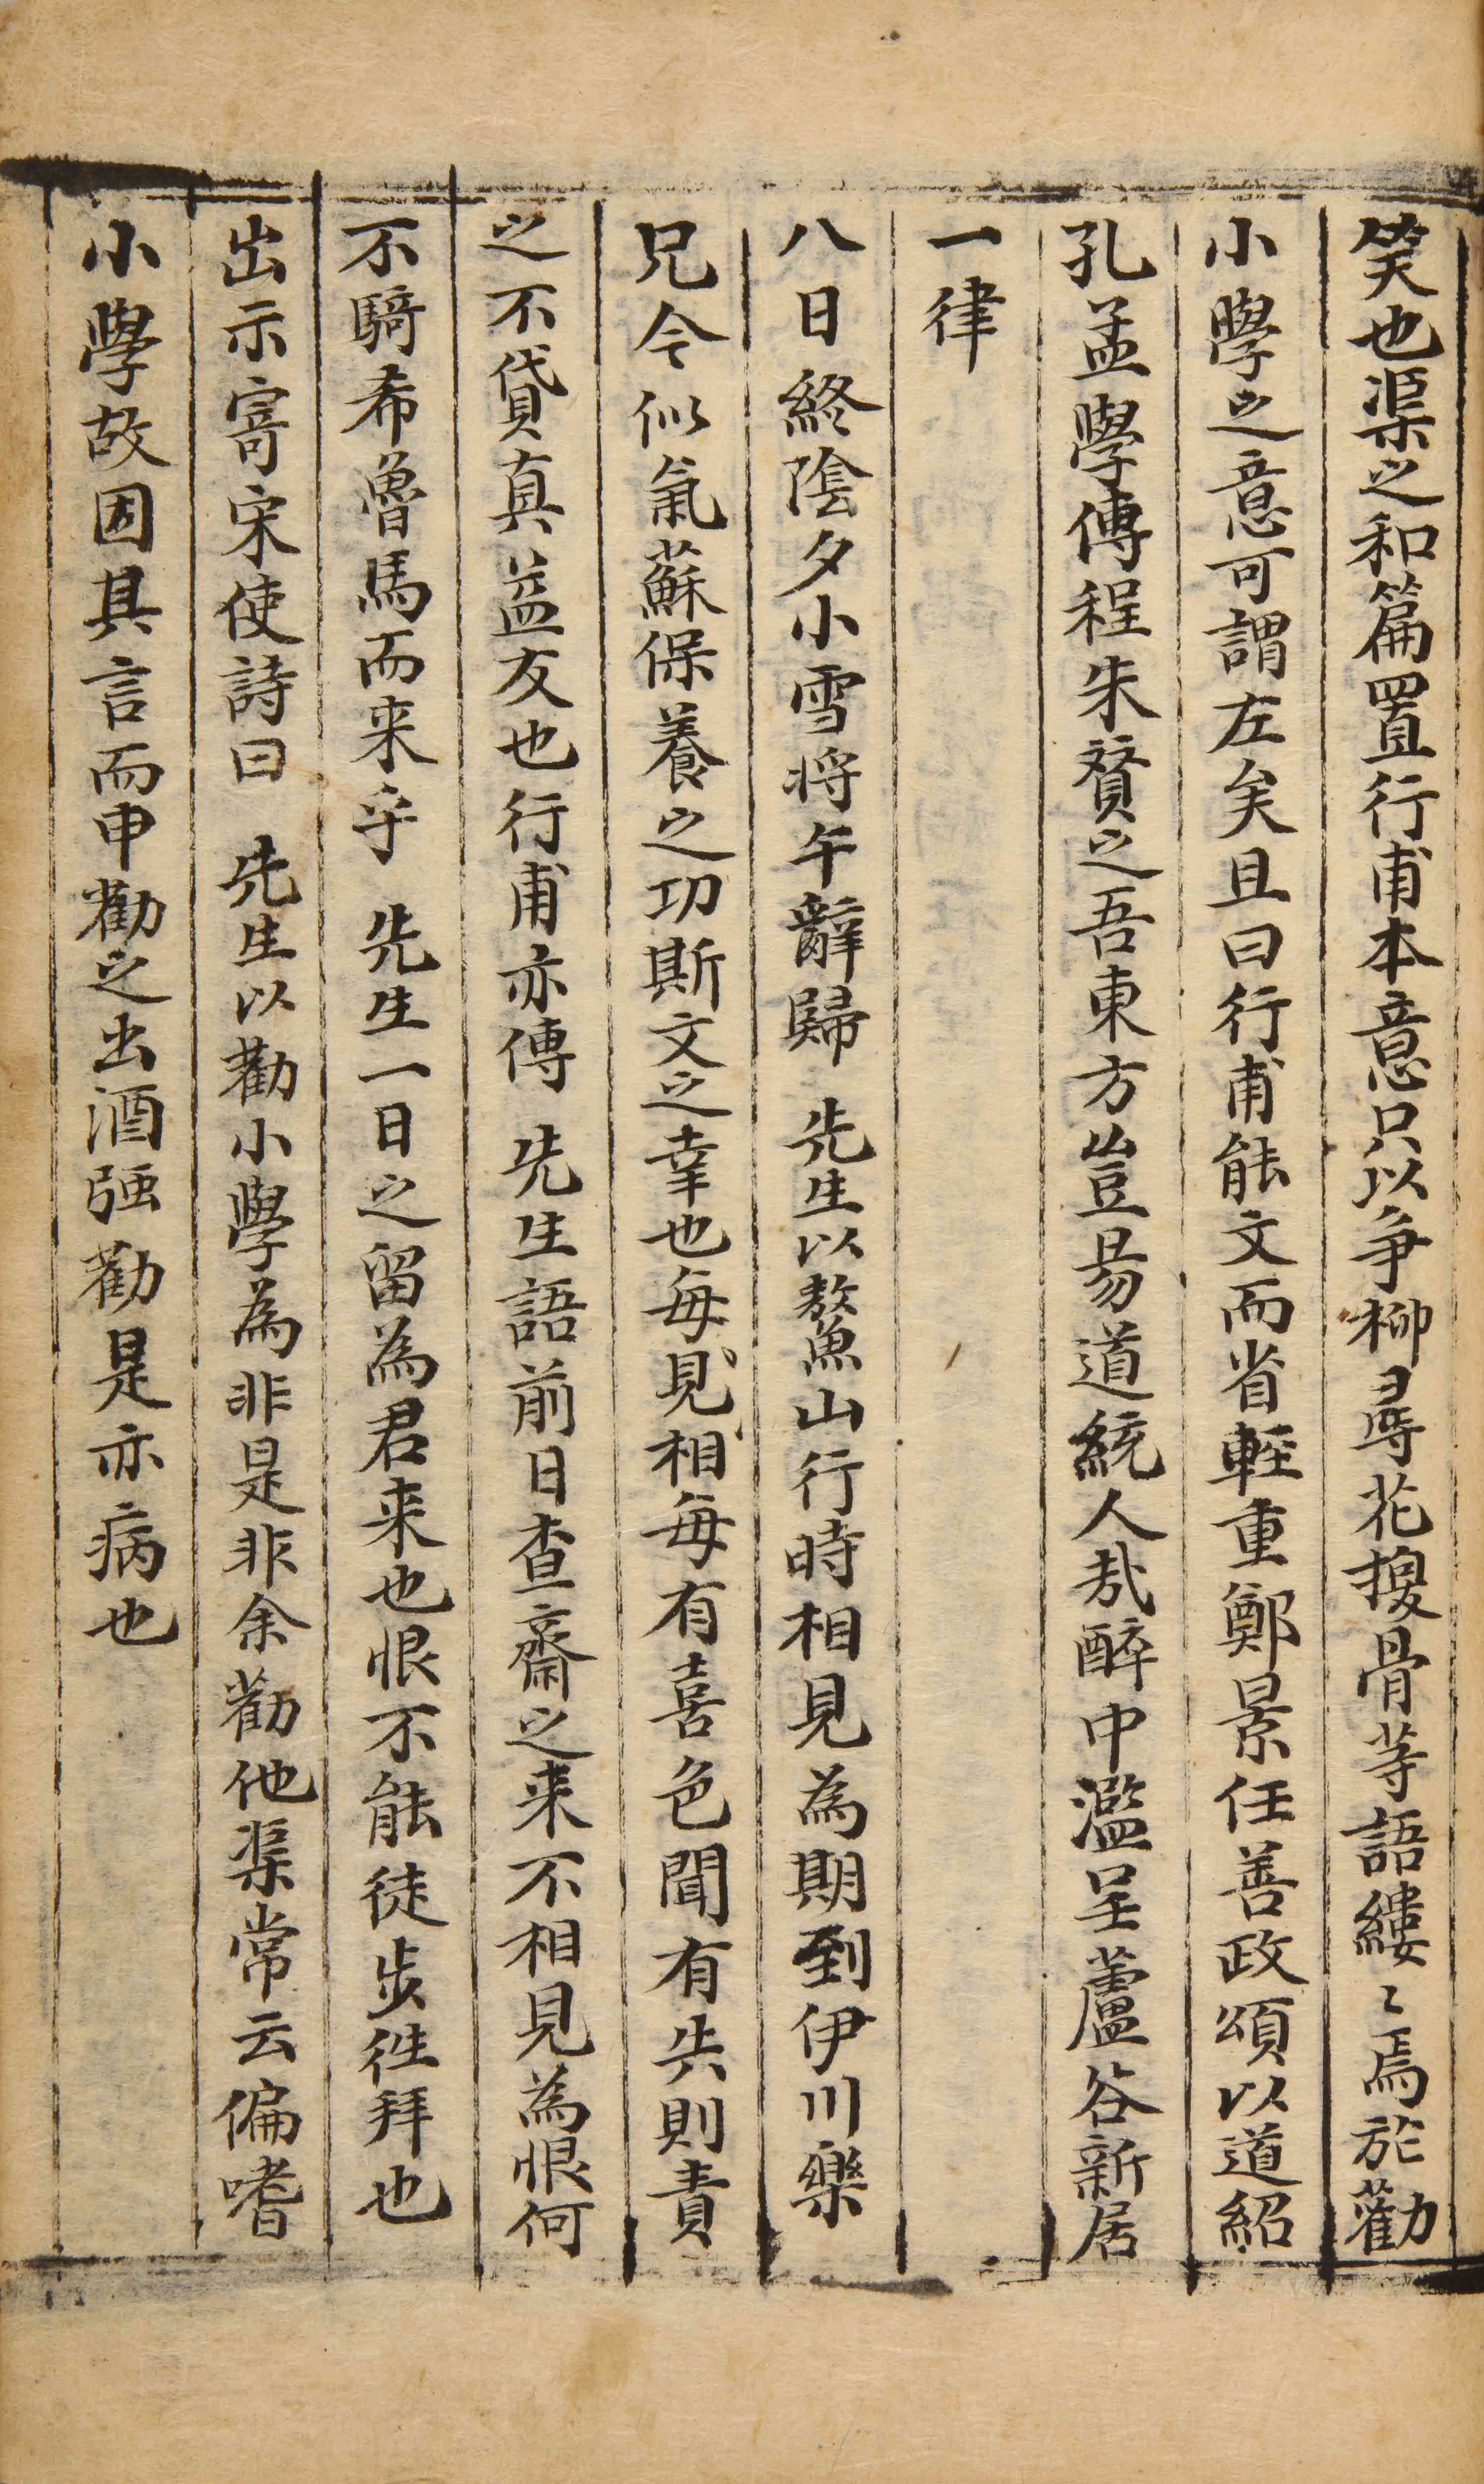 笑也渠之和篇置行甫本意只以爭柳尋花換骨等語縷〻焉於勸
小學之意可謂左矣且曰行甫能文而省輕重鄭景任善政頌以道紹
孔孟學傳程朱賛之吾東方豈易道統人哉醉中濫呈蘆谷新居
一律
八日終陰夕小雪将午辭歸 先生以鰲魚山行時相見為期到伊川樂
兄令似氣蘇保養之功斯文之幸也每見相每有喜色聞有失則責
之不貸真益友也行甫亦傳 先生語前日查齋之来不相見為恨何
不騎希魯馬而来乎 先生一日之留為君来也恨不能徒步徃拜也
出示寄宋使詩曰 先生以勸小學為非是非余勸他渠常云偏嗜
小學故因其言而申勸之出酒强勸是亦病也